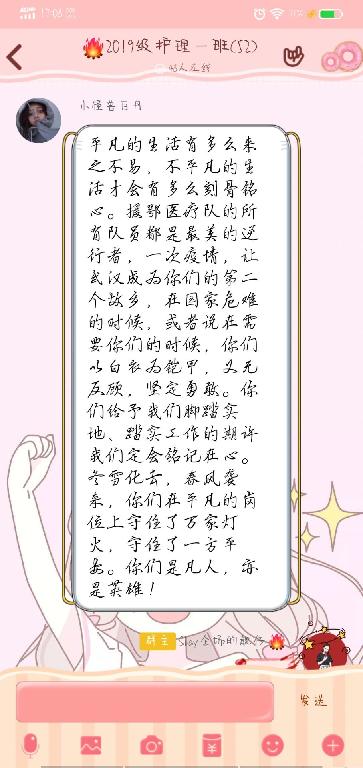 17:06
2019级护理一班(52)
44人在线
平凡的生活有多么来
之不易，不平凡的生
活才会有多么刻骨铭
心。援鄂医疗队的所
有队员都是最美的逆
行者，一次疫情，让
武汉成为你们的第二
个故乡，在国家危难
的时候，或者说在需
要你们的时候，你们
以白衣为铠甲，义无
反顾，坚定勇敢。你
们给予我们脚踏实
地、踏实工作的期许
我们定会铭记在心。
冬雪化去，春风袭
来，你们在平凡的岗
位上守住了万家灯
火，守住了一方平
安。你们是凡人，亦
是英雄！
群主
发送